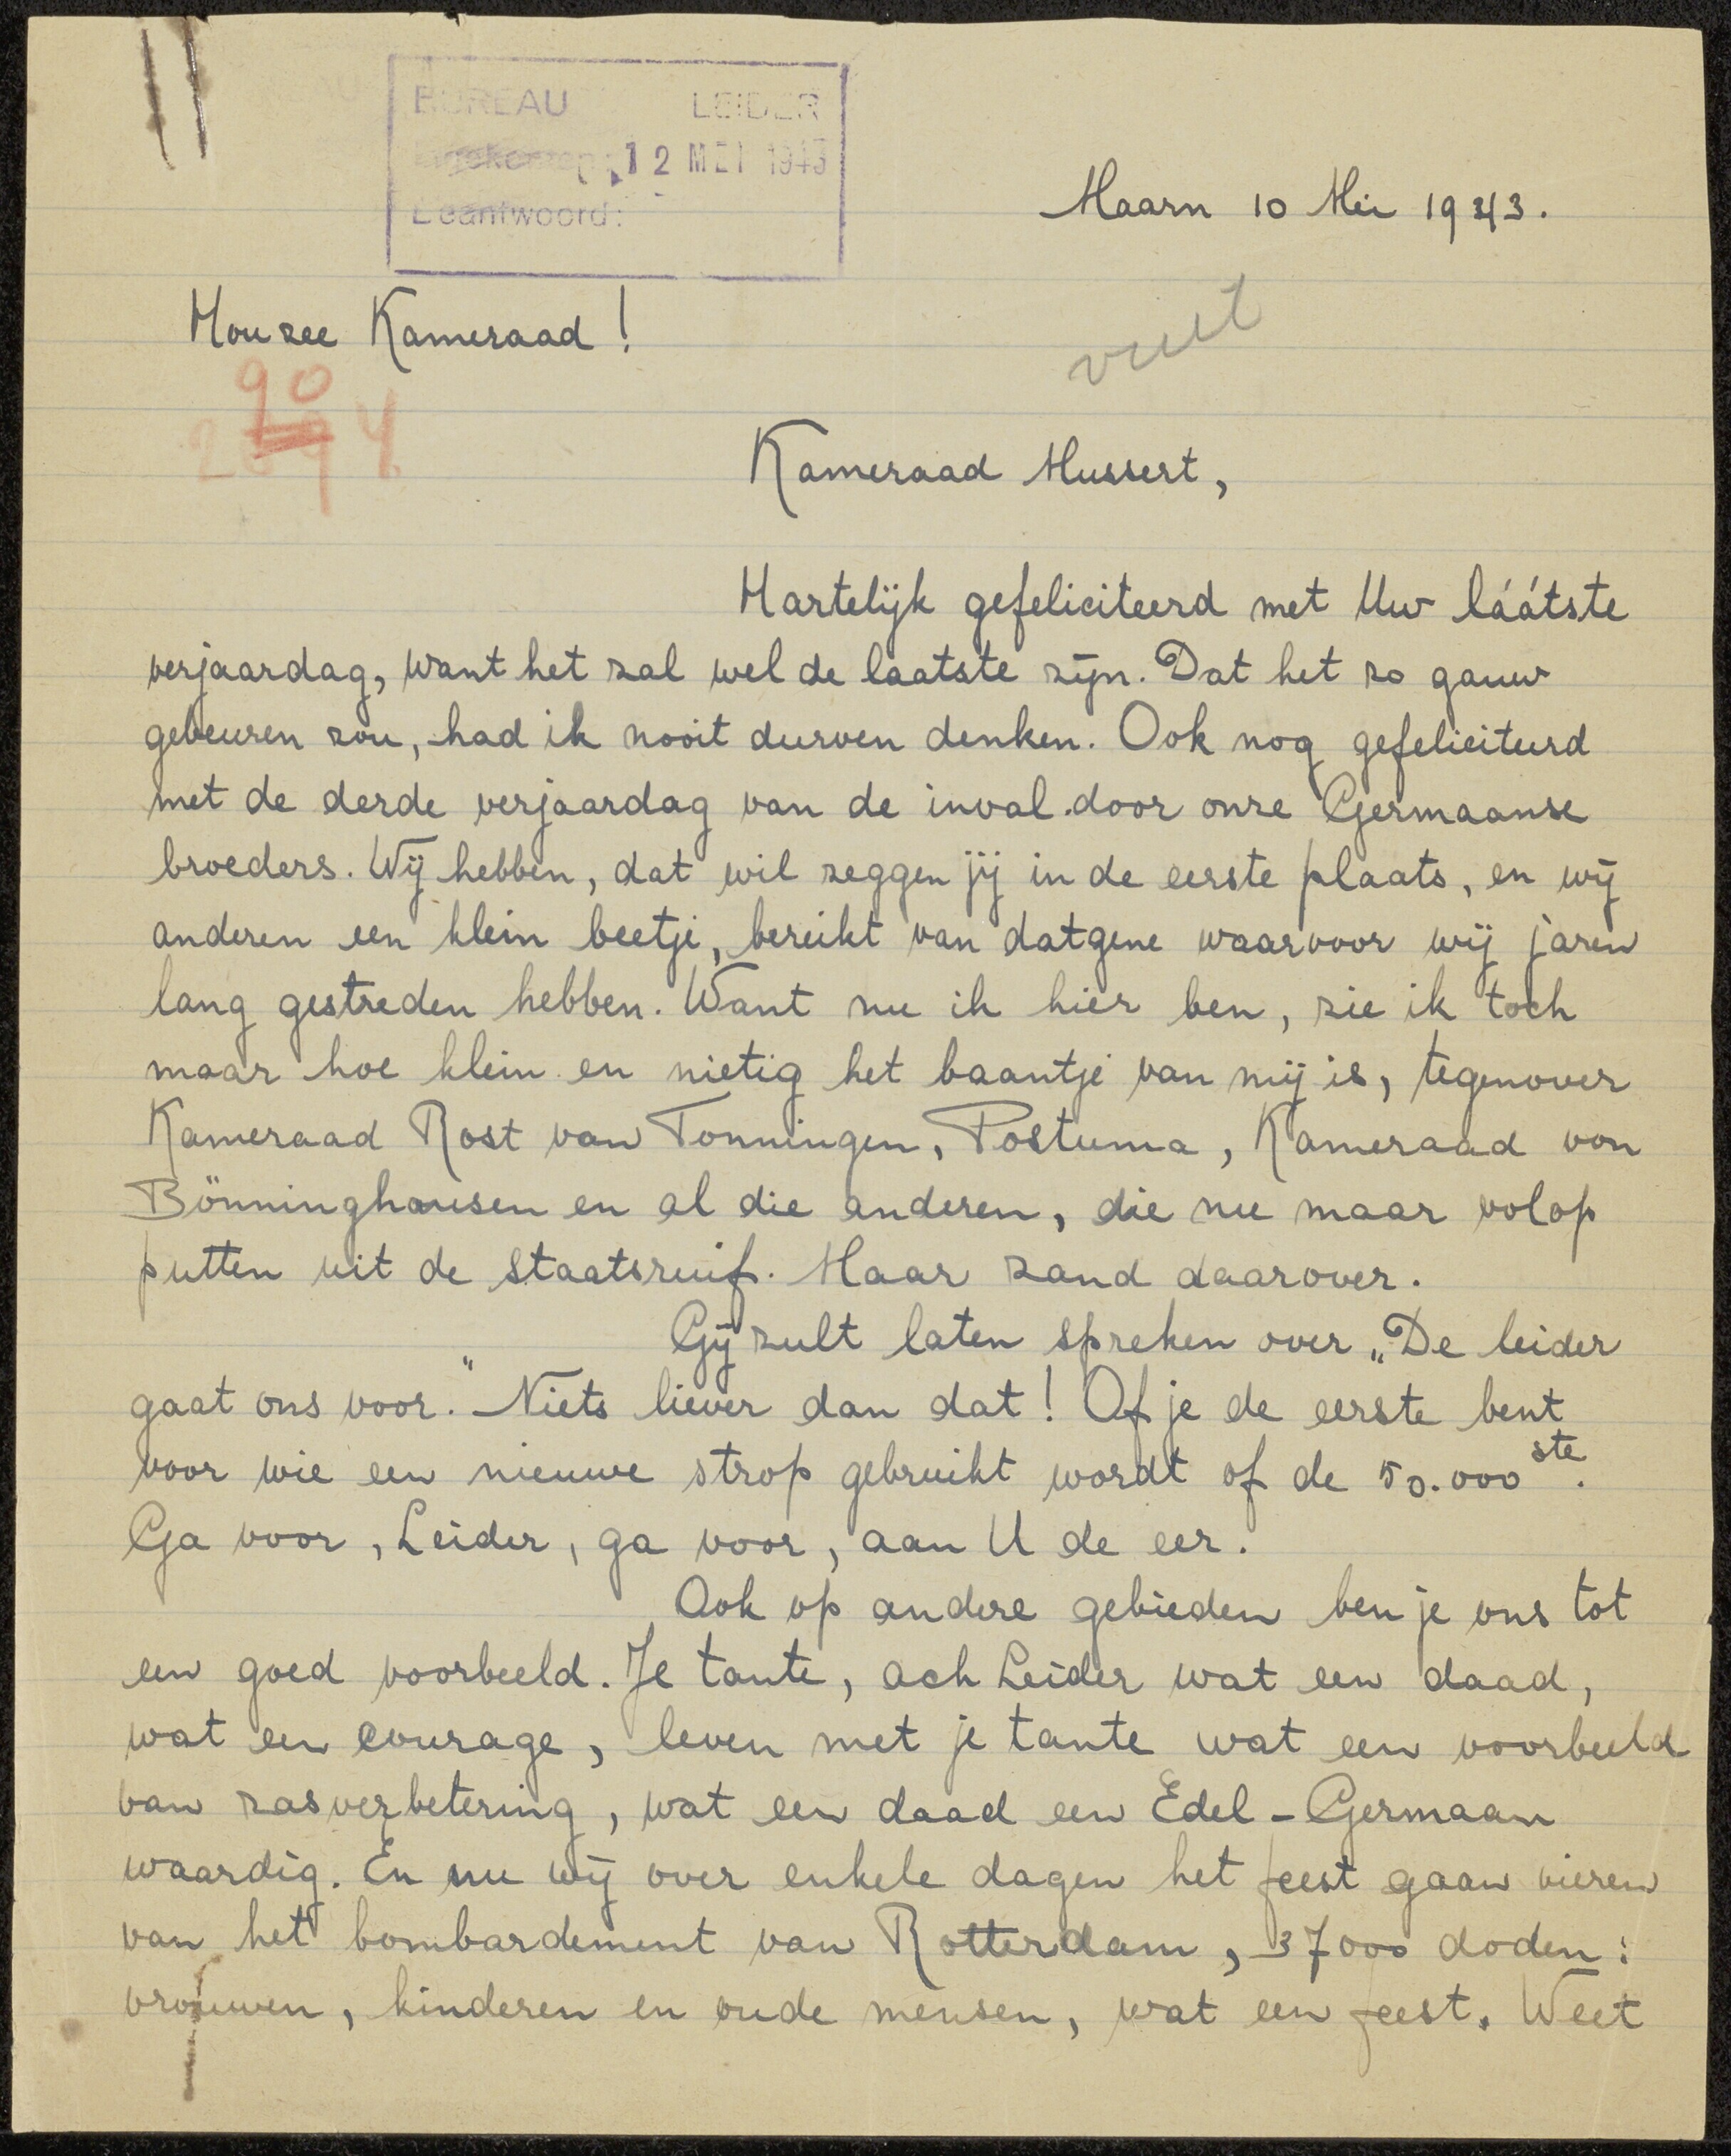 BUREAU LEIDER
Ingekomen: 12 MEI 1943
Beantwoord:
Maarn 10 Mei 1943.
Hou zee Kameraad!
90
4
Kameraad Mussert,
Hartelijk gefeliciteerd met Uw láátste
verjaardag, want het zal wel de laatste zijn. Dat het zo gauw
gebeuren zou, had ik nooit durven denken. Ook nog gefeliciteerd
met de derde verjaardag van de inval door onze Germaanse
broeders. Wij hebben, dat wil zeggen jij in de eerste plaats, en wij
anderen een klein beetje, bereikt van datgene waarvoor wij jaren
lang gestreden hebben. Want nu ik hier ben, zie ik toch
maar hoe klein en nietig het baantje van mij is, tegenover
Kameraad Rost van Tonningen, Postuma, Kameraad von
Bönninghausen en al die anderen, die nu maar volop
putten uit de staatsruif. Maar zand daarover.
Gij zult laten spreken over „De leider
gaat ons voor." Niets liever dan dat! Of je de eerste bent
voor wie een nieuwe strop gebruikt wordt of de 50.000ste.
Ga voor, Leider, ga voor, aan U de eer.
Ook op andere gebieden ben je ons tot
een goed voorbeeld. Je tante, ach Leider wat een daad,
wat een courage, leven met je tante wat een voorbeeld
van rasverbetering, wat een daad een Edel-Germaan
waardig. En nu wij over enkele dagen het feest gaan vieren
van het bombardement van Rotterdam, 37000 doden:
vrouwen, kinderen en oude mensen, wat een feest. Weet